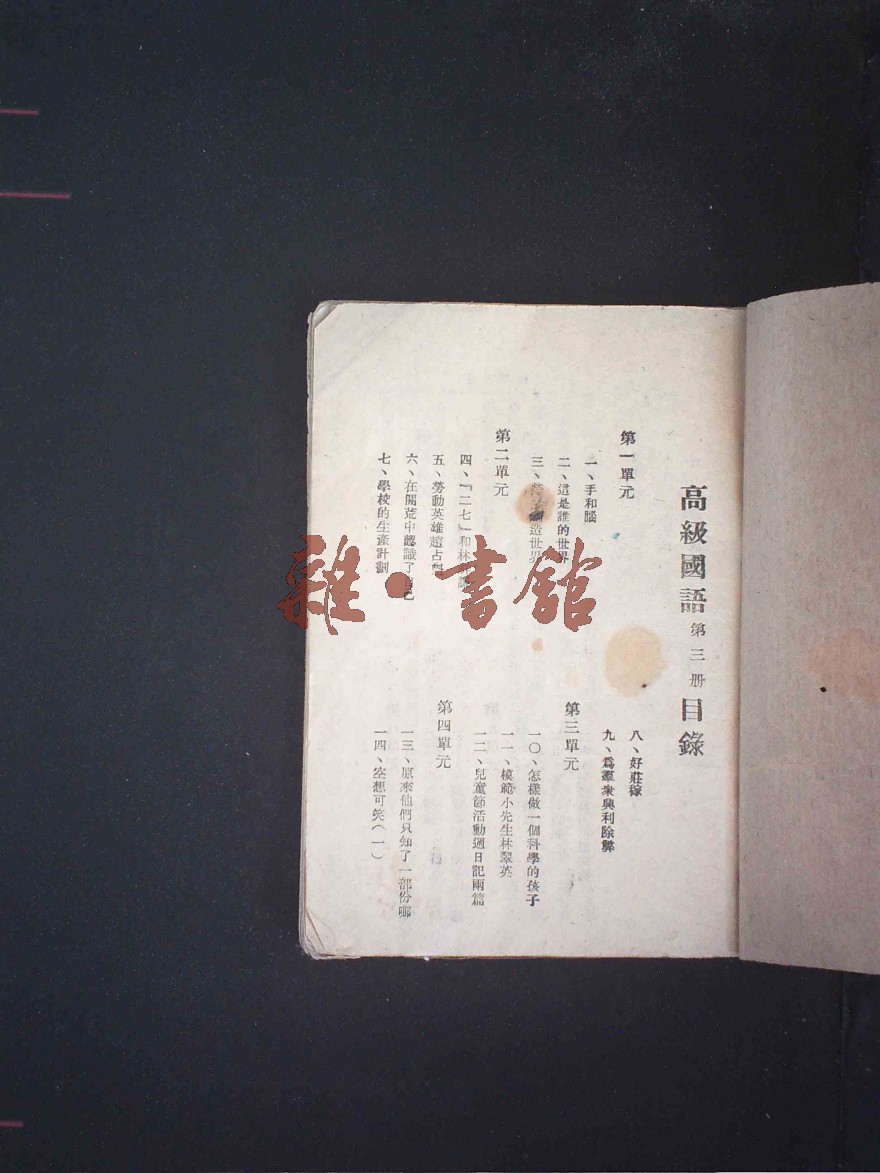 高級國語第三册目錄
第一單元
一、手和腦
二、這是誰的世界
三、造世界
第二單元
四、『二七』和林
五、勞動英雄趙占
六、在開荒中認識了
七、學校的生產計劃
八、好莊稼
九、爲羣衆興利除弊
第三單元
一〇、怎樣做一個科學的孩子
一一、模範小先生林翠英
一二、兒童節活動週日記兩篇
第四單元
一三、原來他們只知了一部份哪
一四、空想可笑(一)
雜·書館